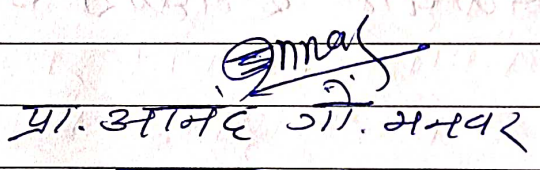 प्रा. आनंद गो. मनवर